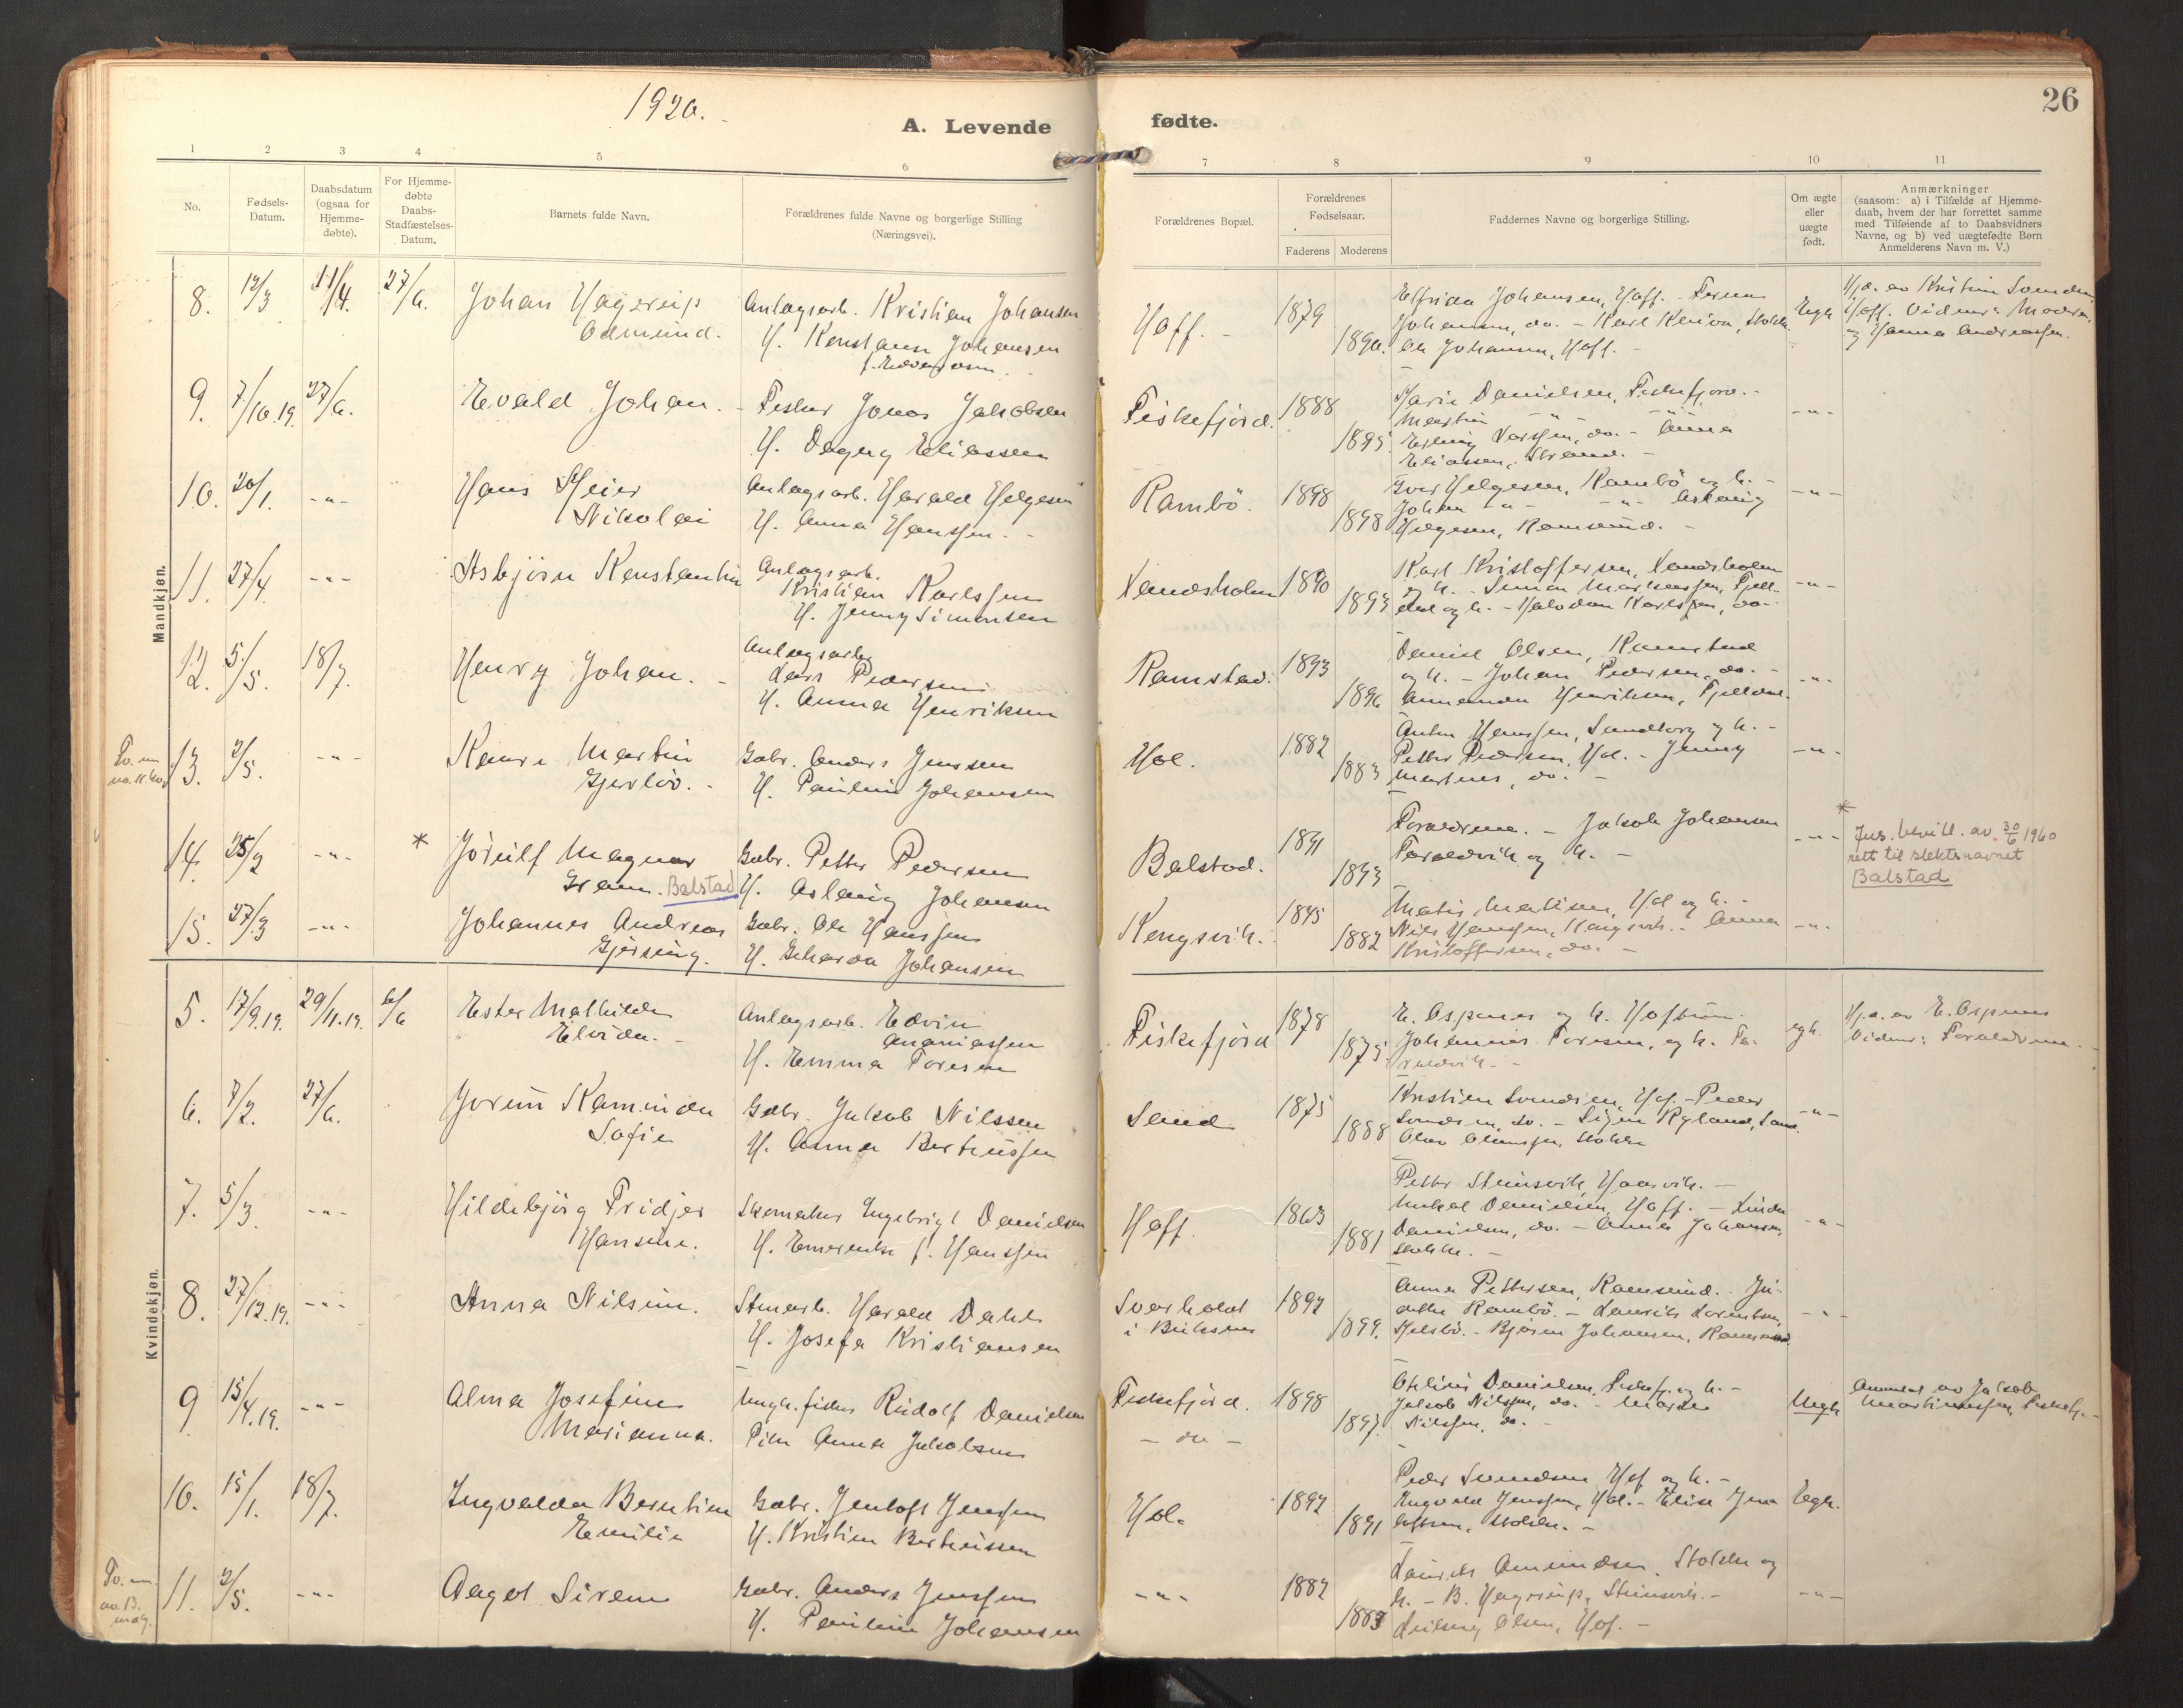 1920.
A. Levende
fødte.
26
1 2 3 4 5 6 7 8 9 10 11
No.
Fødsels-
Datum.
Daabsdatum
(ogsaa for
Hjemme-
døbte).
For Hjemme-
døbte
Daabs-
Stadfæstelses-
Datum.
Barnets fulde Navn.
Forældrenes fulde Navne og borgerlige Stilling
(Næringsvei).
Forældrenes Bopæl.
Forældrenes
Fødselsaar.
Faderens Moderens
Faddernes Navne og borgerlige Stilling.
Om ægte
eller
uægte
født.
Anmærkninger
(saasom: a) i Tilfælde af Hjemme-
daab, hvem der har forrettet samme
med Tilføiende af to Daabsvidners
Navne, og b) ved uægtefødte Børn
Anmelderens Navn m. V.)
Mandkjøn.
8. 12/3 11/4. 27/6. Johan Hagerup
Odmund.
Anlagsarb. Kristian Johansen
H. Konstanse Johansen
Hoff. 1879
1890.
Elfrida Johansen, Hoff.
Johansen, do. - Karl
Ole Johansen, Hoff. -
Egte
Hj.d. av Kristine
Hoff. Vidner: Moderen
og Hanna Andreassen.
9. 7/10.19. 27/6. Evald Johan.
Fisker Jonas Jakobsen
H. Dagny Eliassen
Fiskefjord. 1888
1895.
Marie Danielsen, Fiskefjord. -
Martin -"- -"-
Erling Larssen, do. - Anna
Eliassen, Strand. -
-"-
10. 20/1. -"- Hans Meier
Nikolai
Anlagsarb. Harald Helgesen
H. Anna Hanssen. -
Rambö. 1898
1898
Iver Helgesen, Rambö og h. -
Johan -"- -"- Aslaug
Helgesen, Ramsund. -
-"-
11. 27/4. -"- Asbjörn Konstantin
Anlagsarb.
Kristian Karlssen
H. Jenny Simonsen
Sandsholm 1890
1893
Karl Kristoffersen, Sandsholm
og h. - Simon Martinussen, Fjell-
dal og h. - Halvdan Karlssen, do.
-"-
12. 5/5. 18/7. Henry Johan. -
Anlagsarb.
Lars Pedersen
H. Anna Henriksen
Ramstad. 1893
1896
Daniel Olsen, Ramstad
og h. - Johan Pedersen, do. -
Amanda Henriksen, Fjelldal.
-"-
Tv. m.
no. 11 kv.
13. 2/5. -"- Kaare Martin
Gjerlöv. -
Gabr. Anders Jenssen
H. Pauline Johansen
Hol. 1882
1883
Anton Hanssen, Sandtorg og h. -
Petter Pedersen, Hol. - Jenny
Martines, do. -
-"-
14. 25/2 -"- * Jörulf Magnar
Gram. Balstad
Gabr. Petter Pedersen
H. Aslaug Johansen
Balstad. 1891
1893
Forældrene. - Jakob Johansen
Taraldvik og h. -
-"-
* Jus. bevill. av. 30/6 1960
rett til slektsnavnet
Balstad
15. 27/3 -"- Johannes Andreas
Gjersing.
Gabr. Ole Hanssen
H. Geharda Johansen
Kongsvik. 1845
1882
Matis Matisen, Hol og h. -
Nils Hanssen, Kongsvik. - Anna
Kristoffersen, do. -
-"-
Kvindekjøn.
5. 17/9.19. 29/11.19. 6/6 Ester Mathilde
Elvida. -
Anlagsarb. Edvin
Ananiassen
H. Emma Toresen
Fiskefjord 1878
1875.
E. Aspenes og h. Hofbrun.
Johannes Toresen, og h. Ta-
raldvik. -
egte.
Hj.d. av E. Aspenes
Vidner: Forældrene. -
6. 7/2. 27/6. Jorun Kaminda
Sofie
Gabr. Jakob Nilssen
H. Anna Berteussen
Sand 1875
1888
Kristian Svendsen, Hof. - Peder
Svendsen, do. - Signe Ryland, Sand.
Olav Olaussen, Stokke
-"-
7. 5/3. -"- Hildebjörg Fridjer
Hansine.
Skomaker Engebrigt Danielsen
H. Emerentse f. Hanssen
Hoff. 1863
1881
Petter Steinsvik, Haarvik. -
Mikal Danielsen, Hoff. - Linda
Danielsen, do. - Anna Johansen,
Stokke. -
-"-
8. 27/12.19. -"- Anna Nilsine.
Stenarb. Harald Dahl
H. Josefa Kristiansen
1892
1899.
Anna Pettersen, Ramsund.
Rambö. - Laurits Lorentsen,
- Bjørn Johansen, Ramsund.
-"-
9 15/4.19. -"- Alma Josefine
Marianna.
Ungk. fisker Rudolf Danielsen
Pike Anna Jakobsen
Fiskefjord. 1898
- do - 1897.
Othlius Danielsen, Fiskefj. og h. -
Jakob Nilssen, do. - Marie
Nilssen, do. -
Uegte
Anmeldt av Jakob
Martinussen, Fiskefj. -
10. 15/1. 18/7. Ingvalda Berntine
Emilie
Gabr. Jentoft Jenssen
H. Kristine Berteussen
Hol. 1892
1891
Peder Svendsen Hof og h. -
Ingvald Jenssen, Hol. - Elise Jen-
toftsen, Stokke. -
Egte.
Tv. m.
no. 13.
m.kj.
11. 2/5. -"- Aagot Sirene
Gabr. Anders Jenssen
H. Pauline Johansen
-"- 1882
1883
Laurits Amundsen, Stokke og
h. - B. Hagerup, Steinsvik. -
Solberg Olsen, Hof. -
-"-